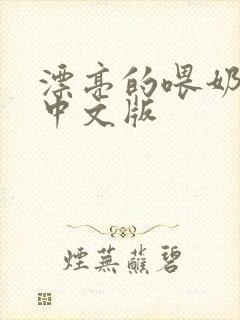 漂亮的喂奶
中文版
煙蕪蘸碧